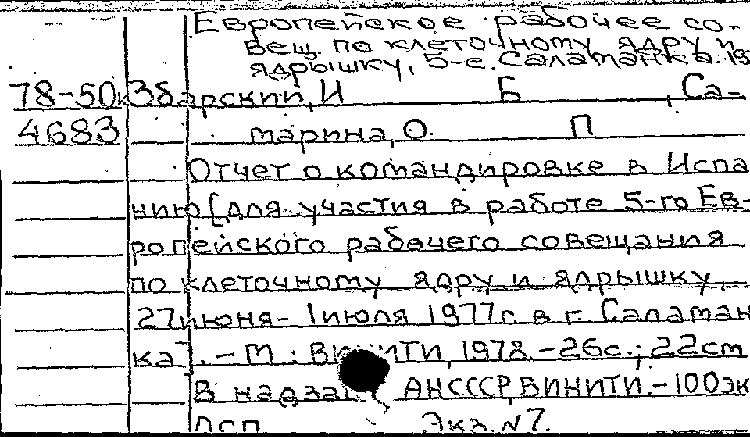 Европейское рабочее со-
вещ. по клеточному ядру и
ядрышку, 5-е. Саламанка. 19
78-50 Збарский, И Б , Са-
4683 марина, О. П
Отчет о командировке в Испа
нию [для участия в работе 5-го Ев-
ропейского рабочего совещания
по клеточному ядру и ядрышку
27 июня - 1 июля 1977 г. в г. Саламан
ка]. - М.: ВИНИТИ, 1978. - 26 с.; 22 см
В надзаг АН СССР, ВИНИТИ. - 100 эк
ДСП Экз. N 7.